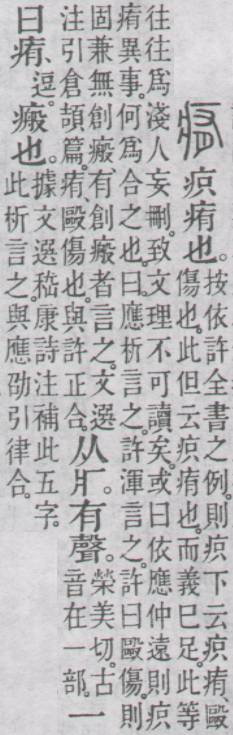 疻痏也。
按依許全書之例。則疻下云疻痏、毆
傷也。此但云疻痏也。而義巳足。此等
往往爲淺人妄刪。致文理不可讀矣。或曰依應仲遠則疻
痏異事。何爲合之也。曰。應析言之。許渾言之。許曰毆傷。則
固兼無創瘢、有創瘢者言之。文選
注引倉頡篇。痏、毆傷也。與許正合。
从疒。有聲。
榮美切。古
音在一部。
一
曰痏、
逗。
瘢也。
據文選嵇康詩注補此五字。
此析言之。與應劭引律合。